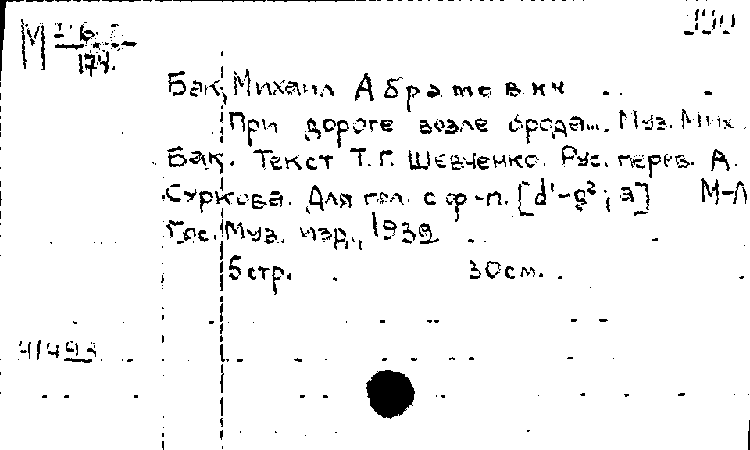 М
174.
Бак, Михаил Абрамович
При дороге возле брода... Муз. Мих.
Бак. Текст Т. Г. Шевченко. Рус. перев. А.
Суркова. Для гол. с ф-п. [d¹-g²; a] М-Л
Гос. Муз. изд., 1939
5 стр. 30 см.
41493